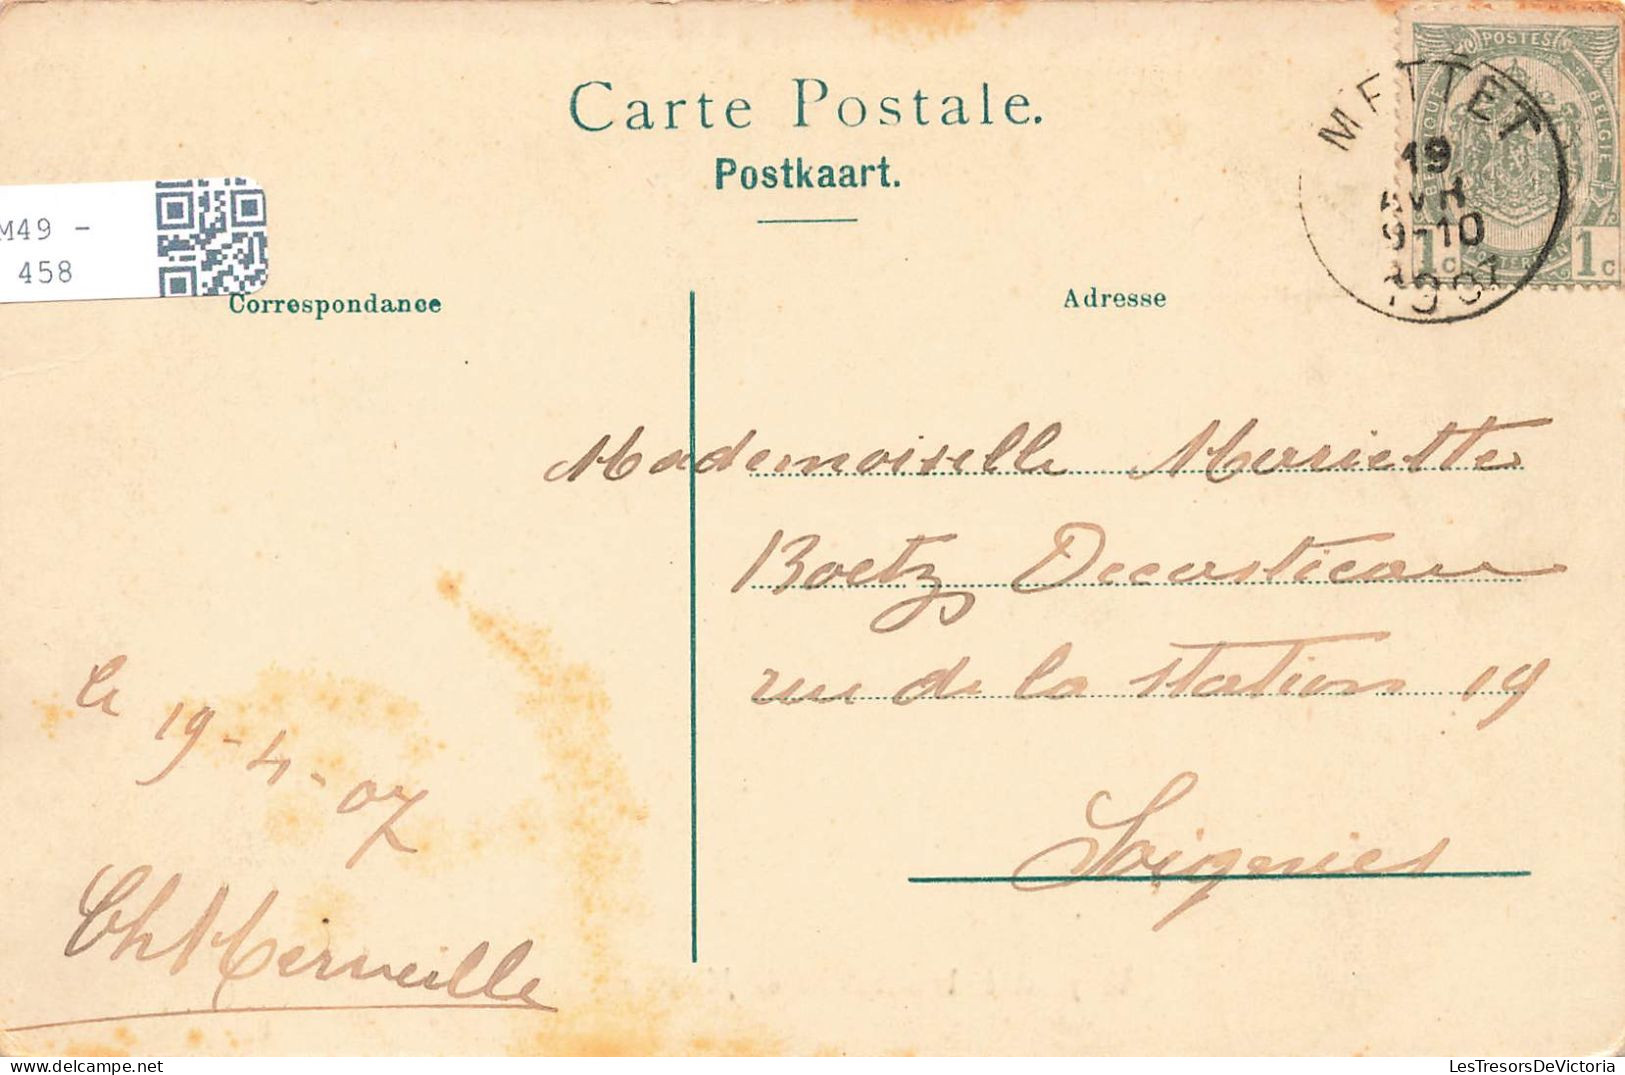 Carte Postale.
Postkaart.
M49 -
458
POSTES
BELGIQUE
BELGIE
1c
1c
METTET
19
AVR
9-10
1907
Correspondance
Adresse
Mademoiselle Mariette
Boetz Decasticau
rue de la Station 19
Soignies
le 19-4-07
Ch Merveille
LesTresorsDeVictoria